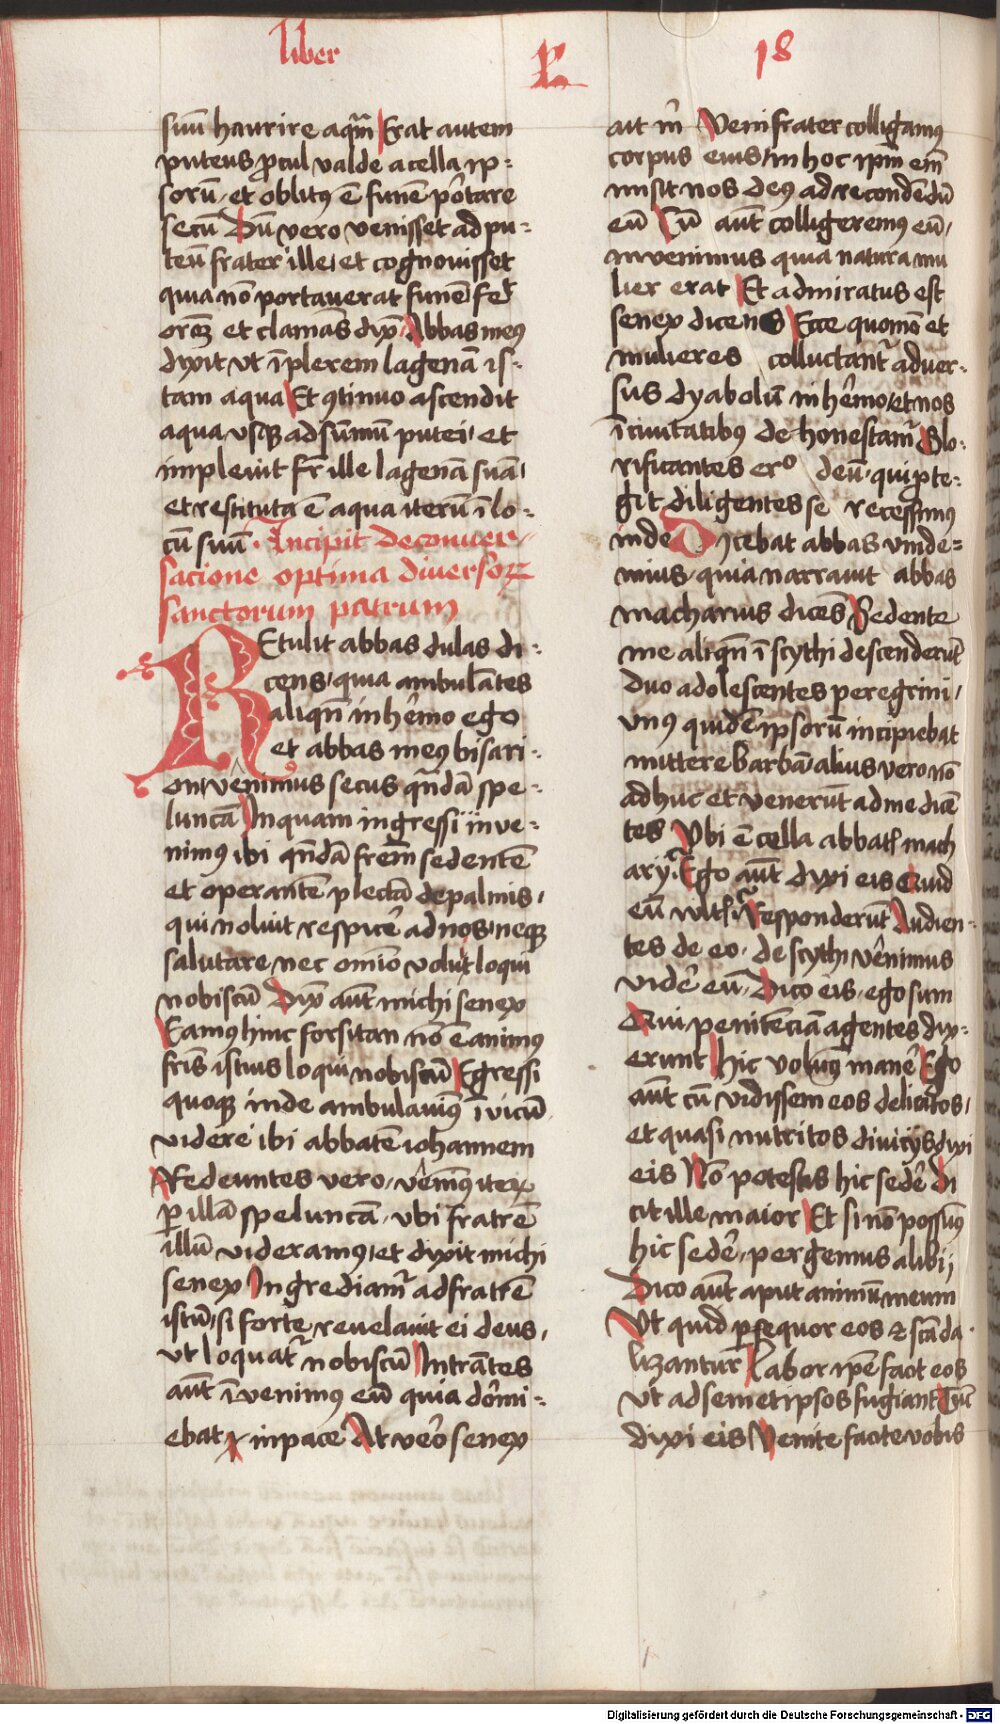 liber
R
18
suū haurire aquā Erat autem
puteus ꝓcul valde a cella ip-
sorū et oblitꝰ ē funē portare
secū Dū vero venisset ad pu-
teū frater ille et cognouisset
quia nō portauerat funē fec̄
orōꝫ et clamās dixͭ Abbas meꝰ
dixit vt īplerem lagenā is-
tam aqua Et ꝯtinuo ascendit
aqua vsqꝫ ad sūmū putei et
impleuit fr̄ ille lagenā suā
et restituta ē aqua iterū ī lo-
cū suū Incipit de conuer-
sacione optima diuersoꝝ
sanctorum patrum
REtulit abbas dulas di-
cens quia ambulātes
aliqn̄ in hêmo ego
et abbas meꝰ bisari-
on venimus secus qn̄dā spe-
luncā Inquam ingressi inve-
nimꝰ ibi qn̄dā frēm sedentē
et operantē plectā de palmis
qui noluit respicê ad nos neqꝫ
salutare nec omīo voluit loqui
nobiscū Dixͭ aūt michi senex
Eamꝰ hinc forsitan nō ē animꝰ
fr̄is istius loqui nobiscū Egressi
quoqꝫ inde ambulauimꝰ ī vicū
videre ibi abbatē iohannem
Redeuntes vero vênimꝰ iteꝝ
ꝑ illā speluncā vbi fratrē
illū videramꝰ et dixit michi
senex Ingrediamͬ ad fratrē
istū si forte reuelauit ei deus
vt loquatͬ nobiscū Intrātes
aūt īvenimꝰ eū quia dôrmi-
ebat in pace At vero senex
ait m̄ Veni frater colligamꝰ
corpus eius in hoc ip̄m em̄
misit nos deꝰ ad recondēdū
eū Cū aūt colligeremꝰ eū
invenimus quia natura mu
lier erat Et admiratus est
senex dicens Ecce quomō et
mulieres colluctantͬ aduer-
sus dyabolū in hêmo et nos
ī ciuitatibꝰ dehonestamͬ Glo-
rificantes erᵒ deū qui ꝓte-
git diligentes se recessimꝰ
inde Dicebat abbas vinde-
mius quia narrauit abbas
macharius dicēs Sedente
me aliqn̄ ī scythi descenderūt
duo adolescentes peregrini
vnꝰ quidē ipsorū incipiebat
mittere barbā alius vero nō
adhuc et venerūt ad me dicē
tes Vbi ē cella abbatꝭ mach
arij Ego aūt dixi eis Quid
eū vultꝭ Responderūt Audien-
tes de eo de scythi vênimus
vidê eū Dico eis ego sum
Qui penitēciā agentes dix-
erunt hic volumꝰ manê Ego
aūt cū vidissem eos delicatos
et quasi nutritos diuicijs dixi
eis Nō potestis hic sedê di
cit ille maior Et si nō possumꝰ
hic sedê pergemus alibi
Dico aūt aput animū meum
Vt quid ꝑsequor eos ⁊ scāda
lizantur Labor ip̄e faciet eos
vt ad semetipsos fugiant Tūc
dixi eis Venite facite vobis
Digitalisierung gefördert durch die Deutsche Forschungsgemeinschaft - DFG